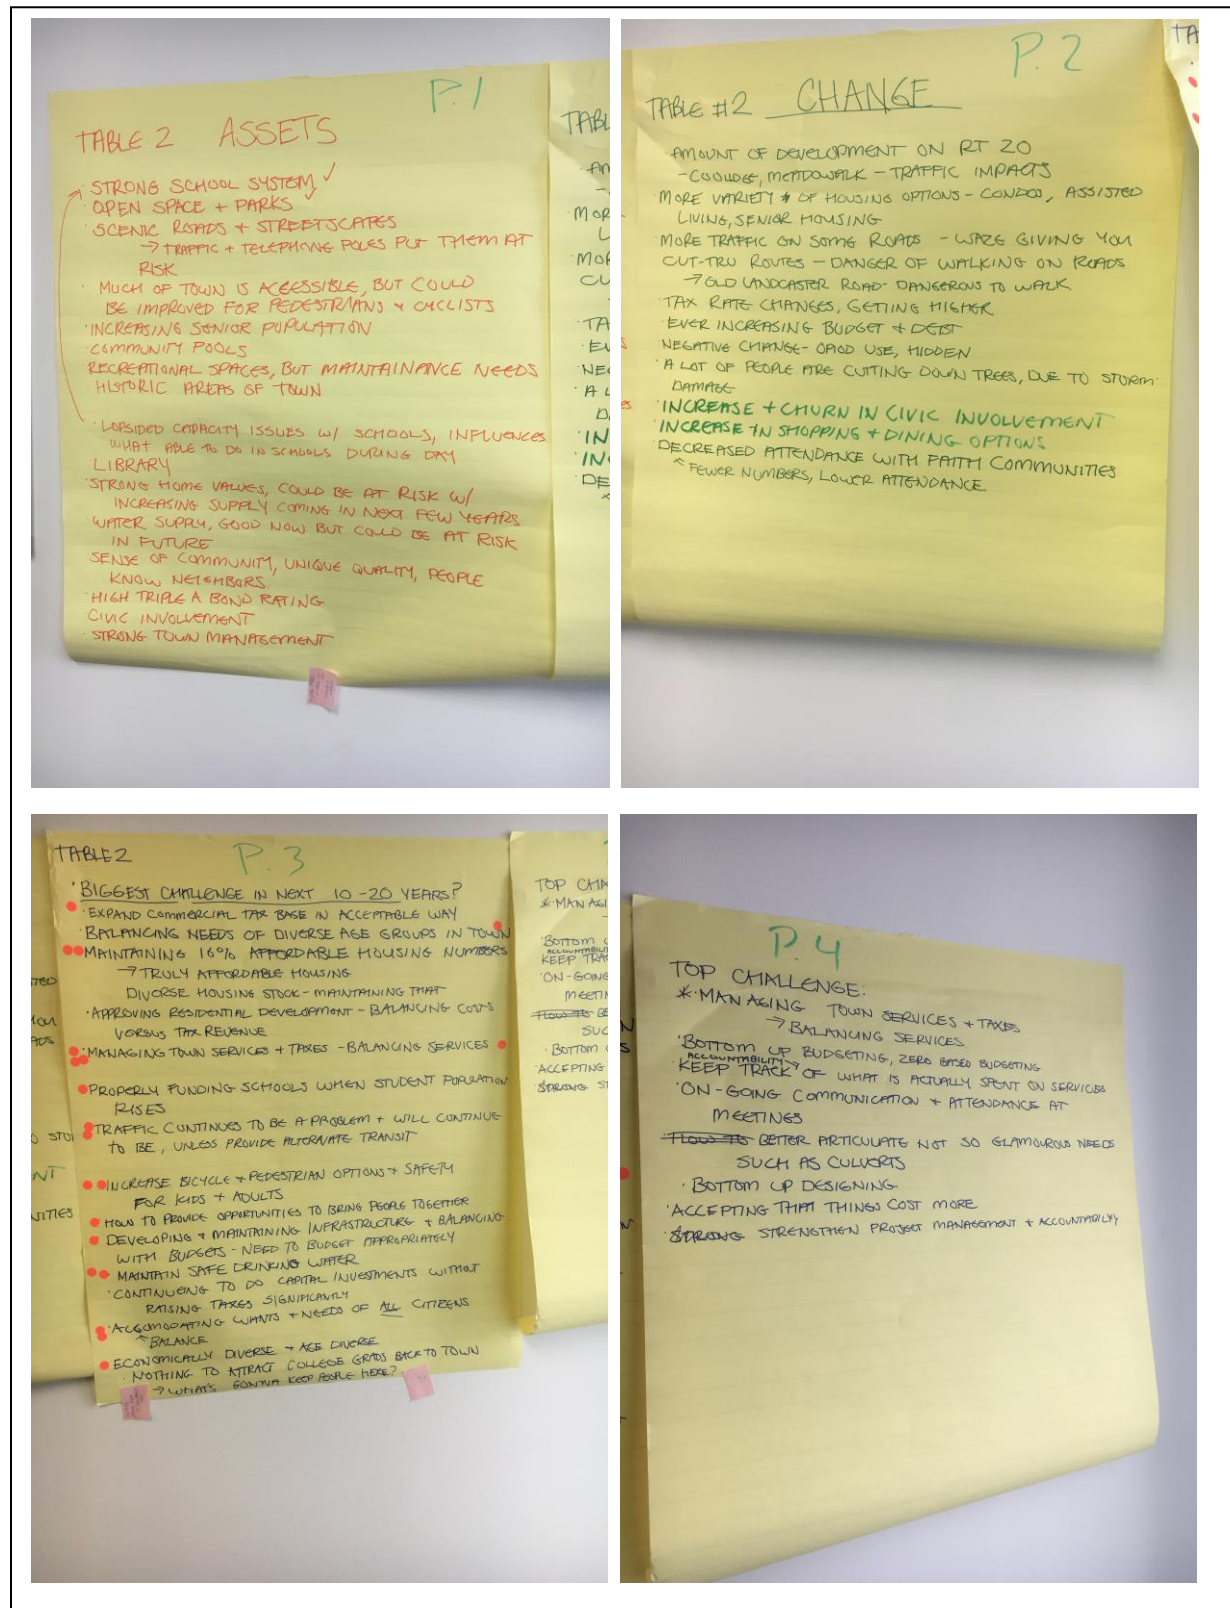 P.1
TABLE 2 ASSETS
· STRONG SCHOOL SYSTEM ✓
· OPEN SPACE + PARKS ✓
· SCENIC ROADS + STREETSCAPES
→ TRAFFIC + TELEPHONE POLES PUT THEM AT
RISK
· MUCH OF TOWN IS ACCESSIBLE, BUT COULD
BE IMPROVED FOR PEDESTRIANS + CYCLISTS
· INCREASING SENIOR POPULATION
· COMMUNITY POOLS
· RECREATIONAL SPACES, BUT MAINTAINANCE NEEDS
· HISTORIC AREAS OF TOWN
· LOPSIDED CAPACITY ISSUES W/ SCHOOLS, INFLUENCES
WHAT ABLE TO DO IN SCHOOLS DURING DAY
LIBRARY
· STRONG HOME VALUES, COULD BE AT RISK W/
INCREASING SUPPLY COMING IN NEXT FEW YEARS
· WATER SUPPLY, GOOD NOW BUT COULD BE AT RISK
IN FUTURE
· SENSE OF COMMUNITY, UNIQUE QUALITY, PEOPLE
KNOW NEIGHBORS
· HIGH TRIPLE A BOND RATING
· CIVIC INVOLVEMENT
· STRONG TOWN MANAGEMENT
P.2
TABLE #2 CHANGE
· AMOUNT OF DEVELOPMENT ON RT 20
- COOLIDGE, MEADOWALK - TRAFFIC IMPACTS
· MORE VARIETY # OF HOUSING OPTIONS - CONDOS, ASSISTED
LIVING, SENIOR HOUSING
· MORE TRAFFIC ON SOME ROADS - WAZE GIVING YOU
CUT-TRU ROUTES - DANGER OF WALKING ON ROADS
→ OLD LANDCASTER ROAD- DANGEROUS TO WALK
· TAX RATE CHANGES, GETTING HIGHER
· EVER INCREASING BUDGET + DEBT
NEGATIVE CHANGE- OPIOD USE, HIDDEN
· A LOT OF PEOPLE ARE CUTTING DOWN TREES, DUE TO STORM
DAMAGE
· INCREASE + CHURN IN CIVIC INVOLVEMENT
· INCREASE IN SHOPPING + DINING OPTIONS
· DECREASED ATTENDANCE WITH FAITH COMMUNITIES
^ FEWER NUMBERS, LOWER ATTENDANCE
TABLE 2
P.3
· BIGGEST CHALLENGE IN NEXT 10-20 YEARS?
· EXPAND COMMERCIAL TAX BASE IN ACCEPTABLE WAY
· BALANCING NEEDS OF DIVERSE AGE GROUPS IN TOWN
MAINTAINING 10% AFFORDABLE HOUSING NUMBERS
→ TRULY AFFORDABLE HOUSING
DIVERSE HOUSING STOCK - MAINTAINING THAT
· APPROVING RESIDENTIAL DEVELOPMENT - BALANCING COSTS
VERSUS TAX REVENUE
· MANAGING TOWN SERVICES + TAXES - BALANCING SERVICES
PROPERLY FUNDING SCHOOLS WHEN STUDENT POPULATION
RISES
TRAFFIC CONTINUES TO BE A PROBLEM + WILL CONTINUE
TO BE, UNLESS PROVIDE ALTERNATE TRANSIT
INCREASE BICYCLE + PEDESTRIAN OPTIONS + SAFETY
FOR KIDS + ADULTS
· HOW TO PROVIDE OPPORTUNITIES TO BRING PEOPLE TOGETHER
DEVELOPING + MAINTAINING INFRASTRUCTURE + BALANCING
WITH BUDGETS - NEED TO BUDGET APPROPRIATELY
MAINTAIN SAFE DRINKING WATER
· CONTINUEING TO DO CAPITAL INVESTMENTS WITHOUT
RAISING TAXES SIGNIFICANTLY
· ACCOMODATING WANTS + NEEDS OF ALL CITIZENS
^ BALANCE
ECONOMICALLY DIVERSE + AGE DIVERSE
· NOTHING TO ATTRACT COLLEGE GRADS BACK TO TOWN
→ WHAT'S GONNA KEEP PEOPLE HERE?
P.4
TOP CHALLENGE:
* · MANAGING TOWN SERVICES + TAXES
→ BALANCING SERVICES
· BOTTOM UP BUDGETING, ZERO BASED BUDGETING
ACCOUNTABILITY →
KEEP TRACK OF WHAT IS ACTUALLY SPENT ON SERVICES
· ON-GOING COMMUNICATION + ATTENDANCE AT
MEETINGS
HOW TO BETTER ARTICULATE NOT SO GLAMOUROUS NEEDS
SUCH AS CULVERTS
· BOTTOM UP DESIGNING
· ACCEPTING THAT THINGS COST MORE
· STRONG STRENGTHEN PROJECT MANAGEMENT + ACCOUNTABILITY